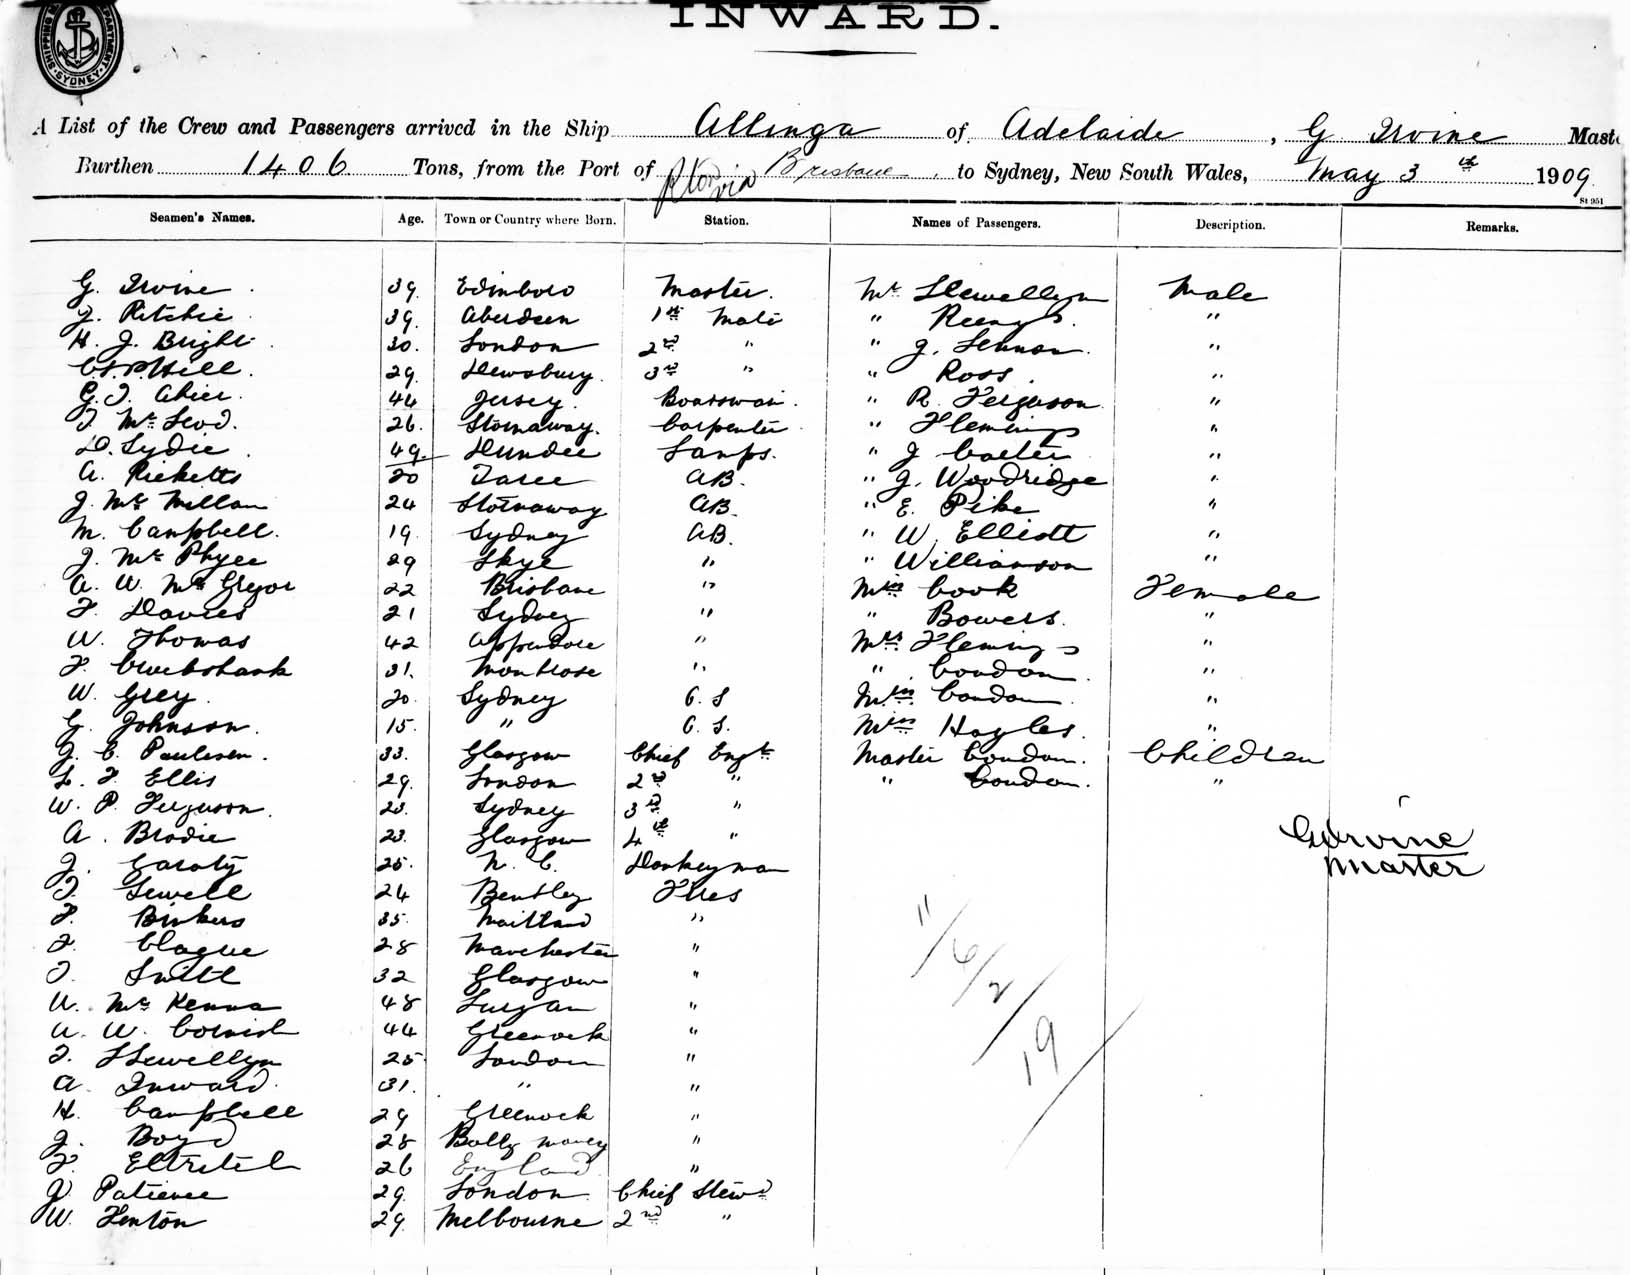 INWARD.
SYDNEY
A List of the Crew and Passengers arrived in the Ship Allinga of Adelaide, G Irvine Maste
Burthen 1406 Tons, from the Port of via Brisbane, to Sydney, New South Wales, May 3 th 1909
St 951
Seamen's Names. Age. Town or Country where Born. Station. Names of Passengers. Description. Remarks.
G. Irvine 39 Edinboro Master. Mr Llewellyn Male
J. Ritchie 39 Aberdeen 1st Mate " "
H. J. Bright 30. London 2nd " " J. Lennon "
Hill. 29. Dewsbury 3rd " " Ross "
G. 44 Jersey. Boatswain. " R. Ferguson "
Mc Leod. 26. Stornaway. Carpenter " Flemings "
D. Lydie 49 Dundee Lamps. " J "
A. Ricketts 20 Taree AB. " J. Woodridge "
J. Mc Millan 24 Stornaway AB. " E. Pike "
M. Campbell. 19. Sydney AB. " W. Elliott "
J. Mc Phyee 29 Skye " " Williamson "
A. W. Mc Gregor 22 Brisbane " Miss Cook Female
F. Davies 21 Sydney " " Bowers. "
W. Thomas 42 Appendore " Mrs Flemings "
F. Cruckshank 31. Montrose " " Condon "
W. Grey 20 Sydney O. S Miss Condon "
G. Johnson. 15. " O. S. Miss Hayles. "
J. C. Paulsen. 33. Glasgow Chief Engr Master Condon. Children
L. F Ellis 29. London 2nd " " Condon. "
W. P. Ferguson 23. Sydney 3rd "
A. Brodie 23. Glasgow 4th "
G Irvine
Master
J. Garaty 25. N. C. Donkeyman
Sewell 24 Bentley Fires
F. Binkers 35. Maitland "
F. Clague 28 Manchester "
32 Glasgow "
Mc Kenna 48 Lurgan "
A. W. Cornish 44 Greenock "
Llewellyn 25 London "
A. Inward 31. " "
H. Campbell 29 Greenock "
J. Boyd 28 Bally money "
F. 26 England "
J. Patience 29. London Chief Stewd
W. Fenton 29. Melbourne 2nd "